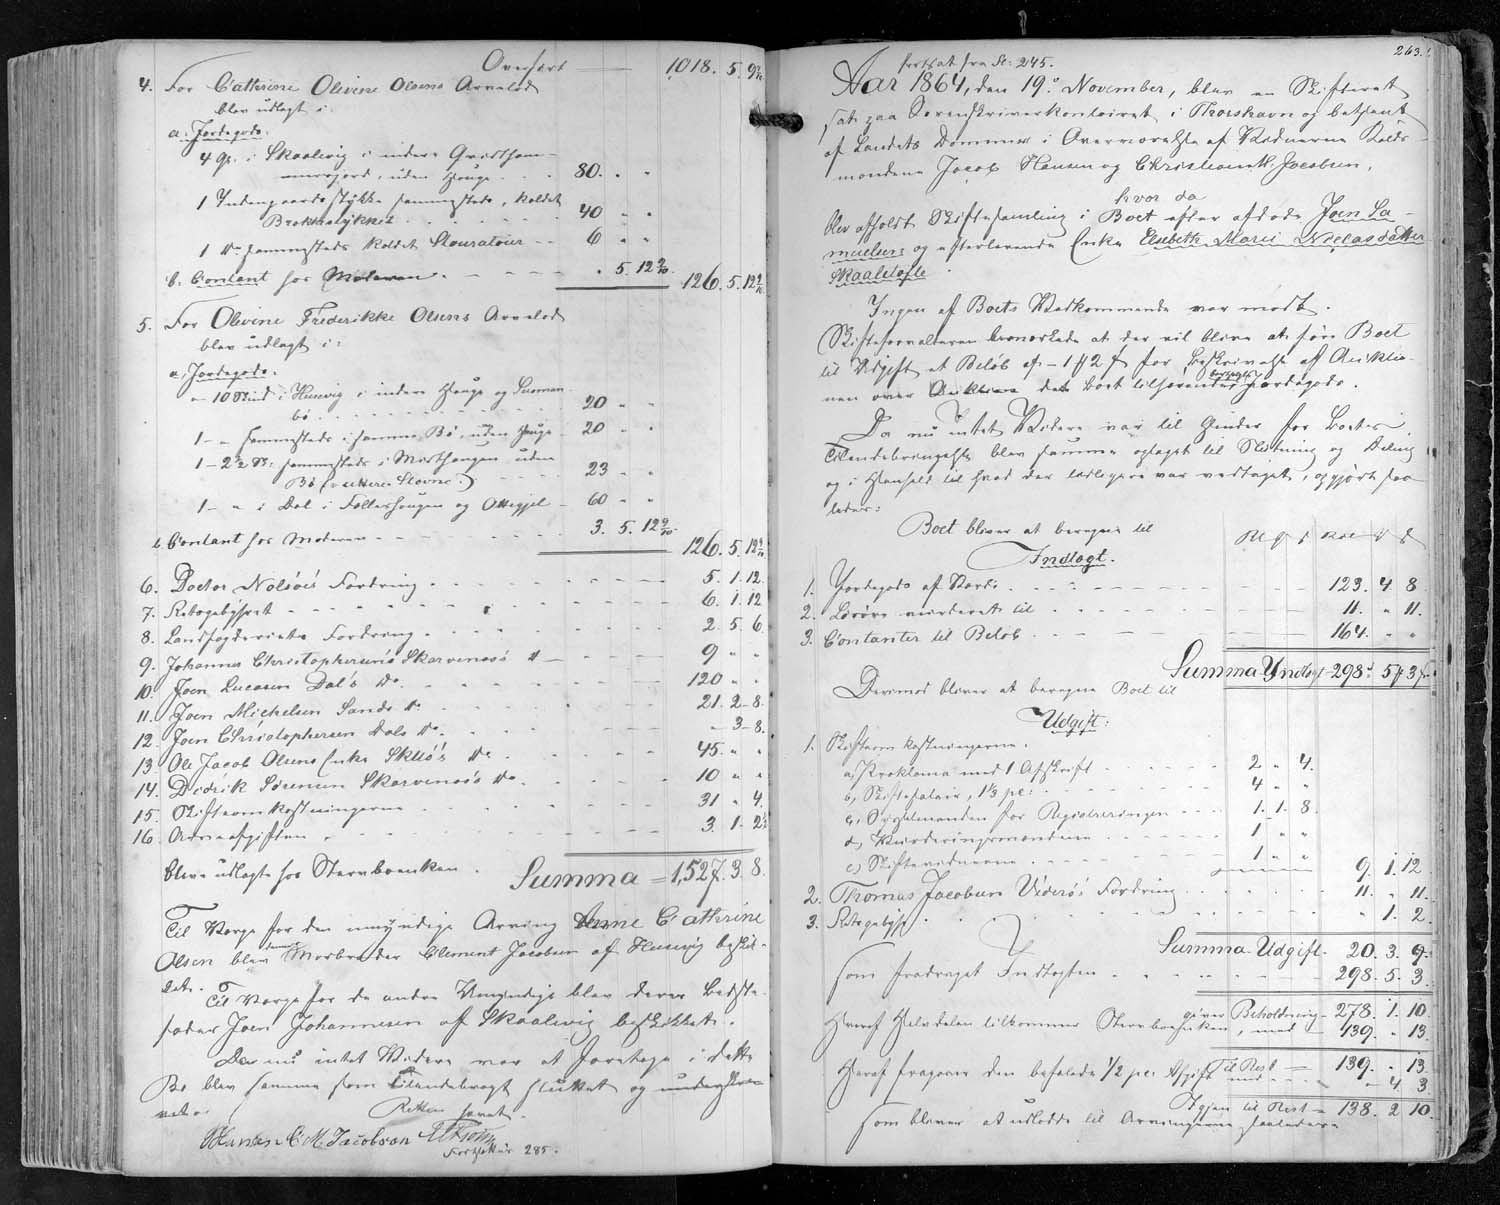 Overført — 1018. 5. 9 2/10
4. For Cathrine Olivine Olsens Arvelod
blev udlagt i:
a. Jordegods:
4 gr. i Skaalevig i indere
uden Hauge 80. " "
1 Indengaardsstykke sammesteds, kaldet
40 " "
1 do. sammesteds kaldet 6 " "
b. Contant hos Moderen . 5. 12 9/10 126. 5. 12 9/10
5. For Olivine Frederikke Olsens Arvelod
blev udlagt i:
a. Jordegods.
10 Skind i Husevig i indere Hauge og
bø 20 " "
1 - " sammesteds i samme Bø, uden Hauge 20 " "
1 - 2½ Sk: sammesteds i uden
Bø 23 " "
1 - " i Dal i og 60 " "
b. Contant hos Moderen 3. 5. 12 9/10 126. 5. 12 9/10
6. Doctor Nolsøes Fordring 5. 1. 12.
7. Retsgebyhret 6. 1. 12
8. Landfogderiets Fordring 2. 5. 6.
9. Johannes Christophersens Skarvenæs do 9 " "
10. Joen Lucasen Dal's do. 120 " "
11. Joen Michelsen Sands do 21. 2 - 8.
12. Joen Christophersen Dals do. - 3 - 8.
13. Ole Jacob Olsens Enke do 45. " "
14. Didrik Sørensen Skarvenæs's do 10 " "
15. Skifteomkostningerne 31 " 4.
16. Arveafgiften 3. 1. 2½
blev udlagt hos Stervboenken. Summa = 1,527. 3. 8.
Til Værge for den umyndige Arving Anne Cathrine
Olsen blev dennes Morbroder Clement Jacobsen af Husevig beskik-
ket.
Til Værge for de andre Umyndige blev deres Bedste-
fader Joen Johannesen af Skaalevig beskikket.
Da nu intet Videre var at foretage i dette
Bo blev samme som tilendebragt sluttet og underskre-
vet.
Retten hævet.
JHansen C M Jacobsen
Fortsættes 285.
263.
fortsat fra Se: 245.
Aar 1864, den 19de November, blev en Skifteret
sat paa Sorenskriverkontoiret i Thorshavn og betjent
af Landets Dommer i Overværelse af Vidnerne Kalds-
mændene Jacob Hansen og Christian M. Jacobsen,
hvor da
blev afholdt Skiftesamling i Boet efter afdøde Joen Sa-
muelsen og efterlevende Enke Elsebeth Marie Niclasdatter
Skaaletofte.
Ingen af Boets Vedkommende var mødt.
Skifteforvalteren bemærkede at der vil blive at føre Boet
til Udgift et Beløb af - 1 f 2 ß for Beskrivelse af Auktio-
nen over det Boet tilhørende Jordegods.
Da nu intet Videre var til Hinder for Boets
Tilendebringelse blev samme optaget til Slutning og Deling
og i Henhold til hvad der tidligere var vedtaget, opgjort saa-
ledes:
Boet bliver at beregne til
Indtægt.
1. Jordegods af Værdi 123. 4 8
2. Løsøre vurderet til 11. " 11.
3. Contanter til Beløb 164. " "
Summa Indtægt 298. 5 3
Derimod bliver at beregne Boet til
Udgift:
1. Skifteomkostningerne.
a, Proklama med 1 Afskrift 2 " 4.
b, Skiftesalair, 1⅓ pc: 4 " "
c, Sysselmanden for Registreringen 1. 1. 8.
d, Vurderingsmændene 1 " "
e, Skiftevidnerne 1 " " 9. 1. 12
2. Thomas Jacobsen Viderø's Fordring 11. " 11.
3. Retsgebyhr " 1. 2.
Summa Udgift. 20. 3. 9.
som fradraget Indtægten 298. 5. 3.
giver Beholdning 278. 1. 10.
Heraf Halvdelen tilkommer Stervboenken, med 139. " 13.
Til Rest 139. " 13.
Heraf fragaaer den befalede 1/2 pc: Afgift med " 4 3
Igjen til Rest 138. 2 10.
som bliver at udlodde til Arvingerne saaledes: